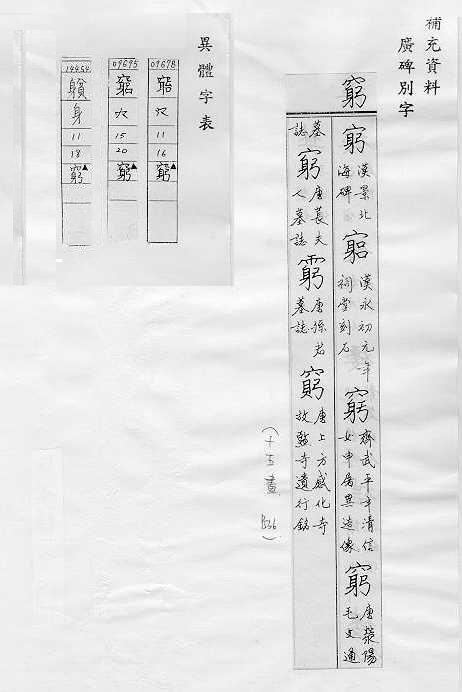 補充資料
廣碑別字
窮
窮 漢景北
海碑
竆 漢永初元年
祠堂刻石
窮 齊武平年清信
女申屠異造像
窮 唐滎陽
毛文通
墓
誌
窮 唐萇夫
人墓誌
唐孫君
墓誌
唐上方感化寺
故監寺遺行銘
(十五畫 B36)
異體字表
09678
穴
11
16
窮▲
09695
竆
穴
15
20
窮▲
14454
身
11
18
窮▲